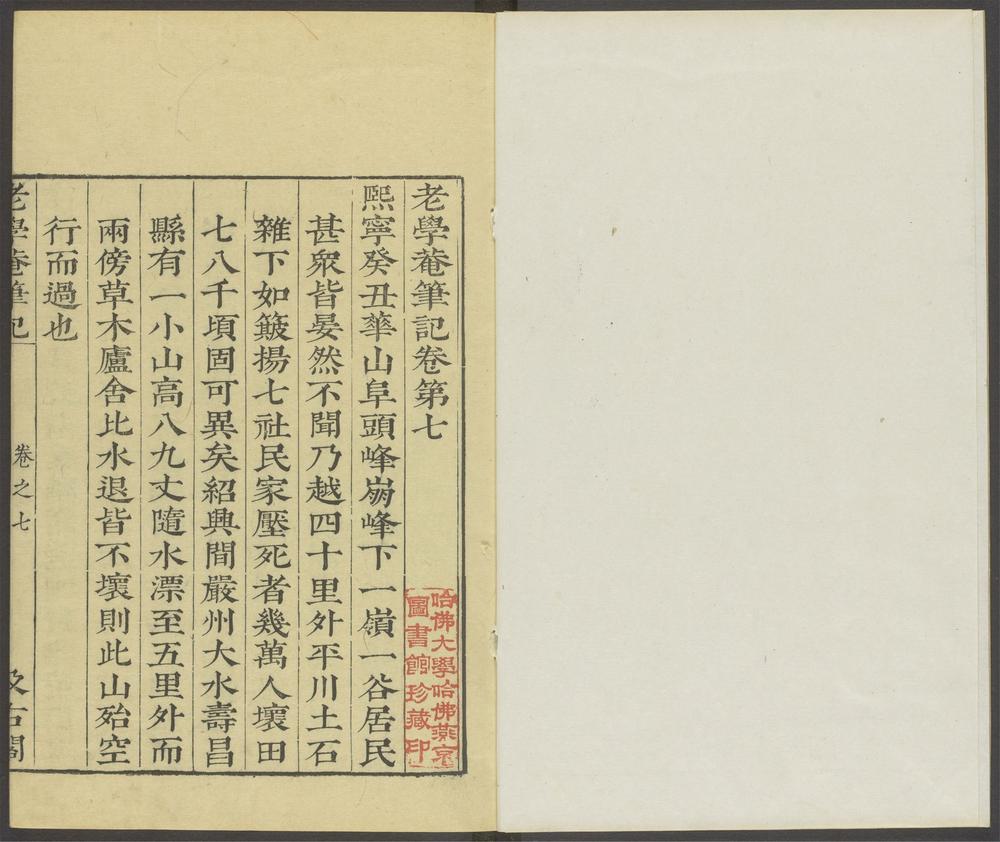 老學菴筆記卷第七
熙寧癸丑華山阜頭峰崩峰下一嶺一谷居民
甚衆皆晏然不聞乃越四十里外平川土石
雜下如簸揚七社民家壓死者幾萬人壞田
七八千頃固可異矣紹興間嚴州大水壽昌
縣有一小山高八九丈隨水漂至五里外而
兩傍草木廬舍比水退皆不壞則此山殆空
行而過也
老學菴筆記
卷之七
汲古閣
哈佛大學哈佛燕京
圖書館珍藏印